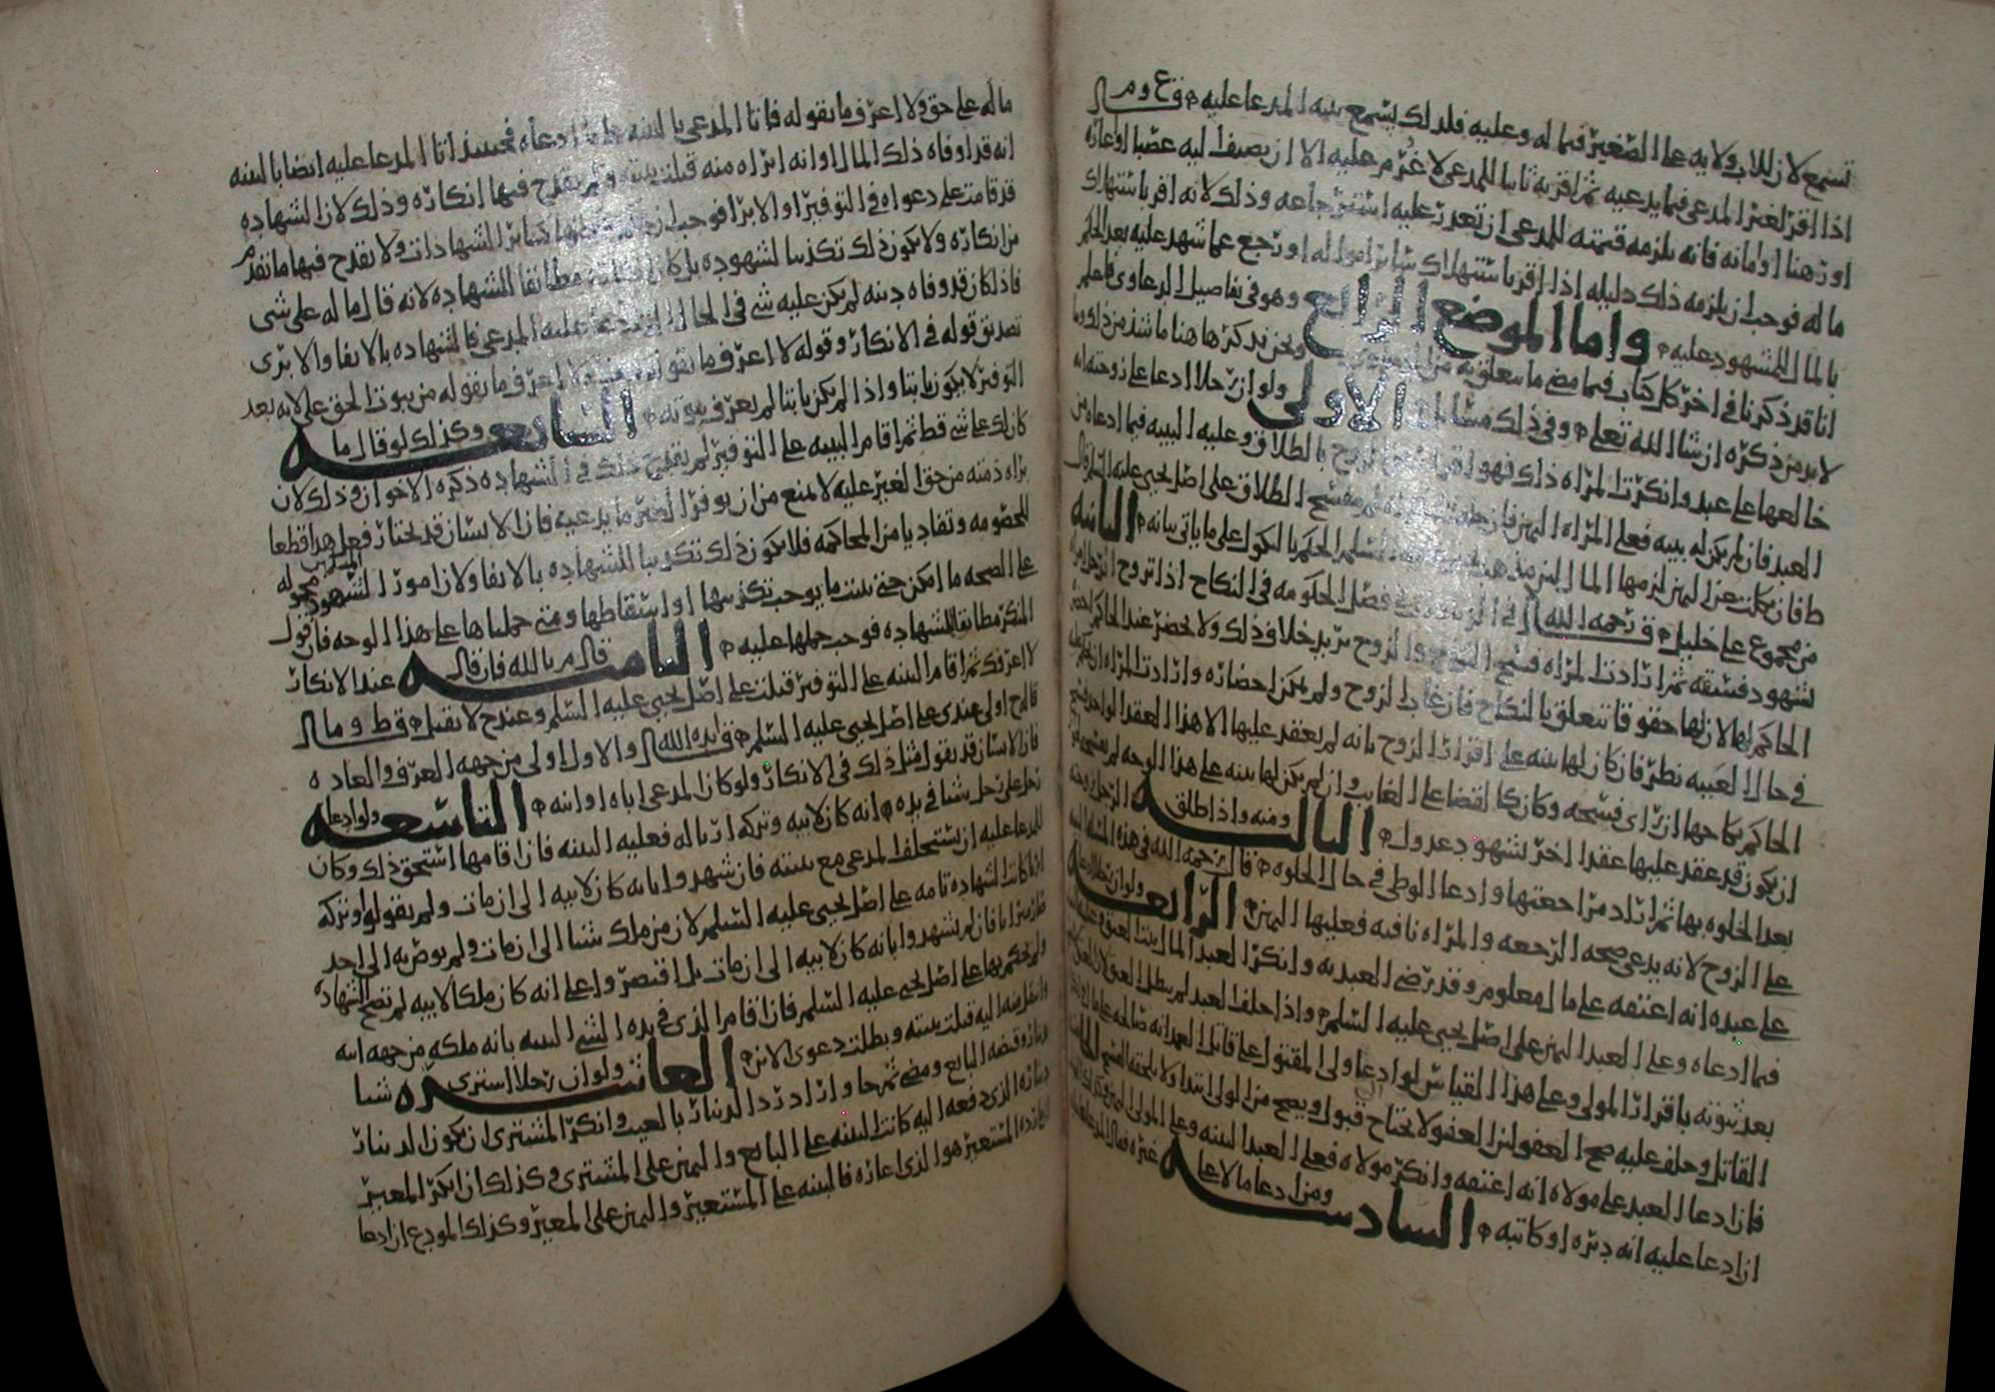 تسمع لان للاب ولايه على الصغير فيما له وعليه فلذلك يسمع بينه المدعا عليه
اذا اقر لغير المدعى فيما يدعيه ثم اقر به ثانيا للمدعى لا غرم عليه الا ان يضيف اليه غصبا او عاريه
او رهنا او امانه فانه يلزمه قيمته للمدعى ان تعذر عليه استرجاعه وذلك لانه اقر باستهلاك
ما له فوجب ان يلزمه ذلك دليله اذا اقر باستهلاك سائر امواله او رجع عما شهد عليه بعد الحكم
بالمال للمشهود عليه واما الموضع الرابع وهو فى تفاصيل الدعاوى فاعلم
انا قد ذكرنا فى اخر كل كتاب فيما مضى ما يتعلق به من ونحن نذكر ها هنا ما شذ من ذلك وما
لا بد من ذكره ان شا الله تعلى وفى ذلك مسائل الاولى ولو ان رجلا ادعا على زوجته انه
خالعها على عبد وانكرت المراه ذلك فهو اقرار من الزوج بالطلاق وعليه البينه فيما ادعاه من
العبد فان لم يكن له بينه فعلى المراه اليمين فان حلفت لم ينفسخ الطلاق على اصل يحيى عليه السلم
فان نكلت عن اليمين لزمها المال السلم الحكم بالنكول على ما ياتى بيانه الثانيه
من مجموع على خليل رحمه الله فى فصل الحكومه فى النكاح اذا تزوج الرجل
بشهود فسقه ثم ارادت المراه فسخ النكاح والزوج يريد خلاف ذلك ولا يحضر عند الحاكم
الحاكم لها لان لها حقوقا تتعلق بالنكاح فان غاب الزوج ولم يمكن احضاره وارادت المراه
فى حال الغيبه نظر فان كان لها بينه على اقرار الزوج بانه لم يعقد عليها الا هذا العقد الواحد فسخ
الحاكم نكاحها ان راى فسخه وكان كالقضا على الغايب وان لم يكن لها بينه على هذا الوجه لم يفسخه
ان يكون قد عقد عليها عقدا اخر بشهود عدول الثالثه ومنه واذا طلق الرجل زوجته
بعد الخلوه بها ثم اراد مراجعتها وادعا الوطى فى حال الخلوه قال رحمه الله فى هذه المسله البينه
على الزوج لانه يدعى صحه الرجعه والمراه نافيه فعليها اليمين الرابعه ولو ان رجلا ادعا
على عبده انه اعتقه على مال معلوم وقد رضى العبد به وانكر العبد المال ثبت العتق وعليه البينه
فيما ادعاه وعلى العبد اليمين على اصل يحيى عليه السلم واذا حلف العبد لم يبطل العتق لان العتق
بعد ثبوته باقرار المولى وعلى هذا القياس لو ادعا ولى المقتول على قاتل العمد انه صالحه على مال
القاتل وحلف عليه صح العفو لان العفو لا يحتاج قبول ويصح من الولى ابتدا ولا يلحقه الفسخ
فان ادعا العبد على مولاه انه اعتقه وانكر مولاه فعلى العبد البينه وعلى المولى اليمين وكذلك
ان ادعا عليه انه دبره او كاتبه السادسه ومن ادعا مالا على غيره فقال المدعا عليه
ما له على حق ولا اعرف ما يقوله فاتا المدعى بالبينه على ما ادعاه فحينئذ اتا المدعا عليه ايضا بالبينه
انه قد اوفاه ذلك المال او انه ابراه منه قبلت بينته ولم يقدح فيها انكاره وذلك لان الشهاده
قد قامت على دعواه فى التوفير او الابرا فوجب ان كسائر الشهادات ولا يقدح فيها ما تقدم
من انكاره ولا يكون ذلك تكذيبا لشهوده بل كان مطابقا للشهاده لانه قال ما له على شى
فاذا كان قد وفاه دينه لم يكن عليه شى فى الحال عليه المدعى فالشهاده بالايفا والابرا
تصديق قوله فى الانكار وقوله لا اعرف ما يقوله لا اعرف ما يقوله من ثبوت الحق على لانه بعد
التوفير لا يكون ثابتا واذا لم يكن ثابتا لم يعرف ثبوته السابعه وكذلك لو قال ما
كان لك على شى قط ثم اقام البينه على التوفير لم يقدح ذلك فى الشهاده ذكره الاخوان وذلك لان
براه ذمته من حق الغير عليه لا يمنع من ان يوفر الغير ما يدعيه فان الانسان قد يختار فعل هذا قطعا
للخصومه وتفاديا من المحاكمه فلا يكون ذلك تكذيبا للشهاده بالايفا ولان امور الشهود محموله
على الصحه ما امكن حتى يثبت ما يوجب تكذيبها او اسقاطها ومتى حملناها على هذا الوجه فان قول
المنكر مطابقا للشهاده فوجب حملها عليه الثامنه قال م بالله فان قال عند الانكار
لا اعرفك ثم اقام البينه على التوفير قبلت على اصل يحيى عليه السلم وعند ح لا تقبل
قال ح اولى عندى على اصل يحيى عليه السلم ايده الله والاول اولى من جهه العرف والعاده
فان الانسان قد يقول مثل ذلك فى الانكار ولو كان المدعى اباه او ابنه التاسعه ولو ادعا
رجل على رجل شيا فى يده انه كان لابيه وتركه ارثا له فعليه البينه فان اقامها استحق ذلك وكان
للمدعا عليه ان يستحلف المدعى مع بينته فان شهدوا بانه كان لابيه الى ان مات ولم يقولوا وتركه
ارثا كانت الشهاده تامه على اصل يحيى عليه السلم لان من ملك شيا الى ان مات ولم يوص به الى احد
فان لم يشهدوا بانه كان لابيه الى ان مات بل اقتصروا على انه كان ملكا لابيه لم تصح الشهاده
ولم يحكم بها على اصل يحيى عليه السلم فان اقام الذى فى يده الشى البينه بانه ملكه من جهه ابيه
وانتقل منه اليه قبلت بينته وبطلت دعوى الابن العاشره ولو ان رجلا اشترى شيا
بدنانير وقبضه البايع ومضى ثم جا واراد رد الدنانير بالعيب وانكر المشترى ان يكون الدنانير
دنانيره الذى دفعه اليه كانت البينه على البايع واليمين على المشترى وكذلك ان انكر المعير
ان رده المستعير هو الذى اعاره فالبينه على المستعير واليمين على المعير وكذلك المودع ان ادعا